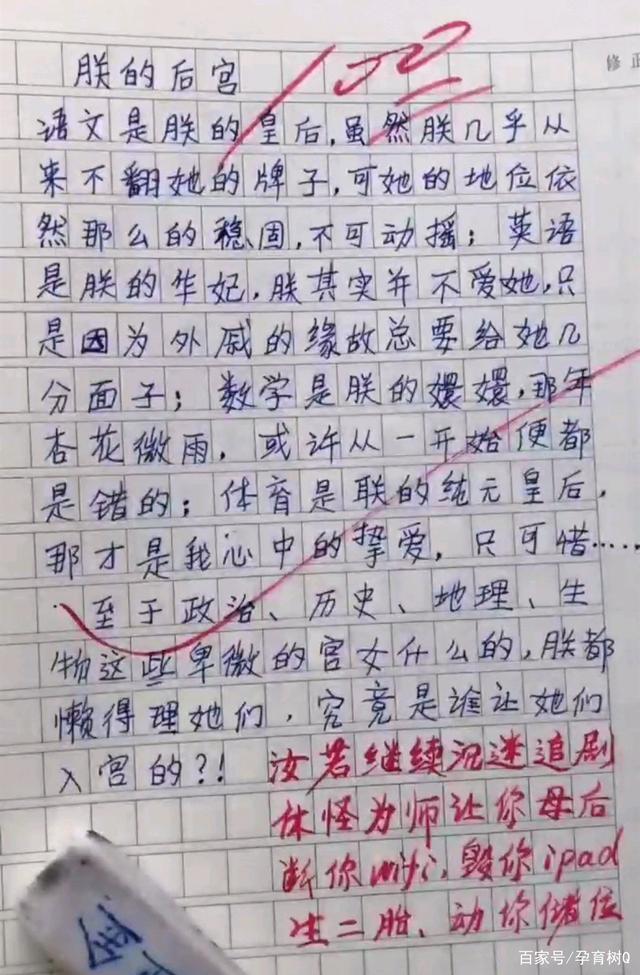 修正
朕的后宫
语文是朕的皇后,虽然朕几乎从
来不翻她的牌子,可她的地位依
然那么的稳固,不可动摇;英语
是朕的华妃,朕其实并不爱她,只
是因为外戚的缘故总要给她几
分面子;数学是朕的嬛嬛,那年
杏花微雨,或许从一开始便都
是错的;体育是朕的纯元皇后,
那才是我心中的挚爱,只可惜……
至于政治、历史、地理、生
物这些卑微的宫女什么的,朕都
懒得理她们,究竟是谁让她们
入宫的?!
汝若继续沉迷追剧
休怪为师让你母后
断你wifi,毁你ipad
生二胎、动你储位
百家号/孕育树Q